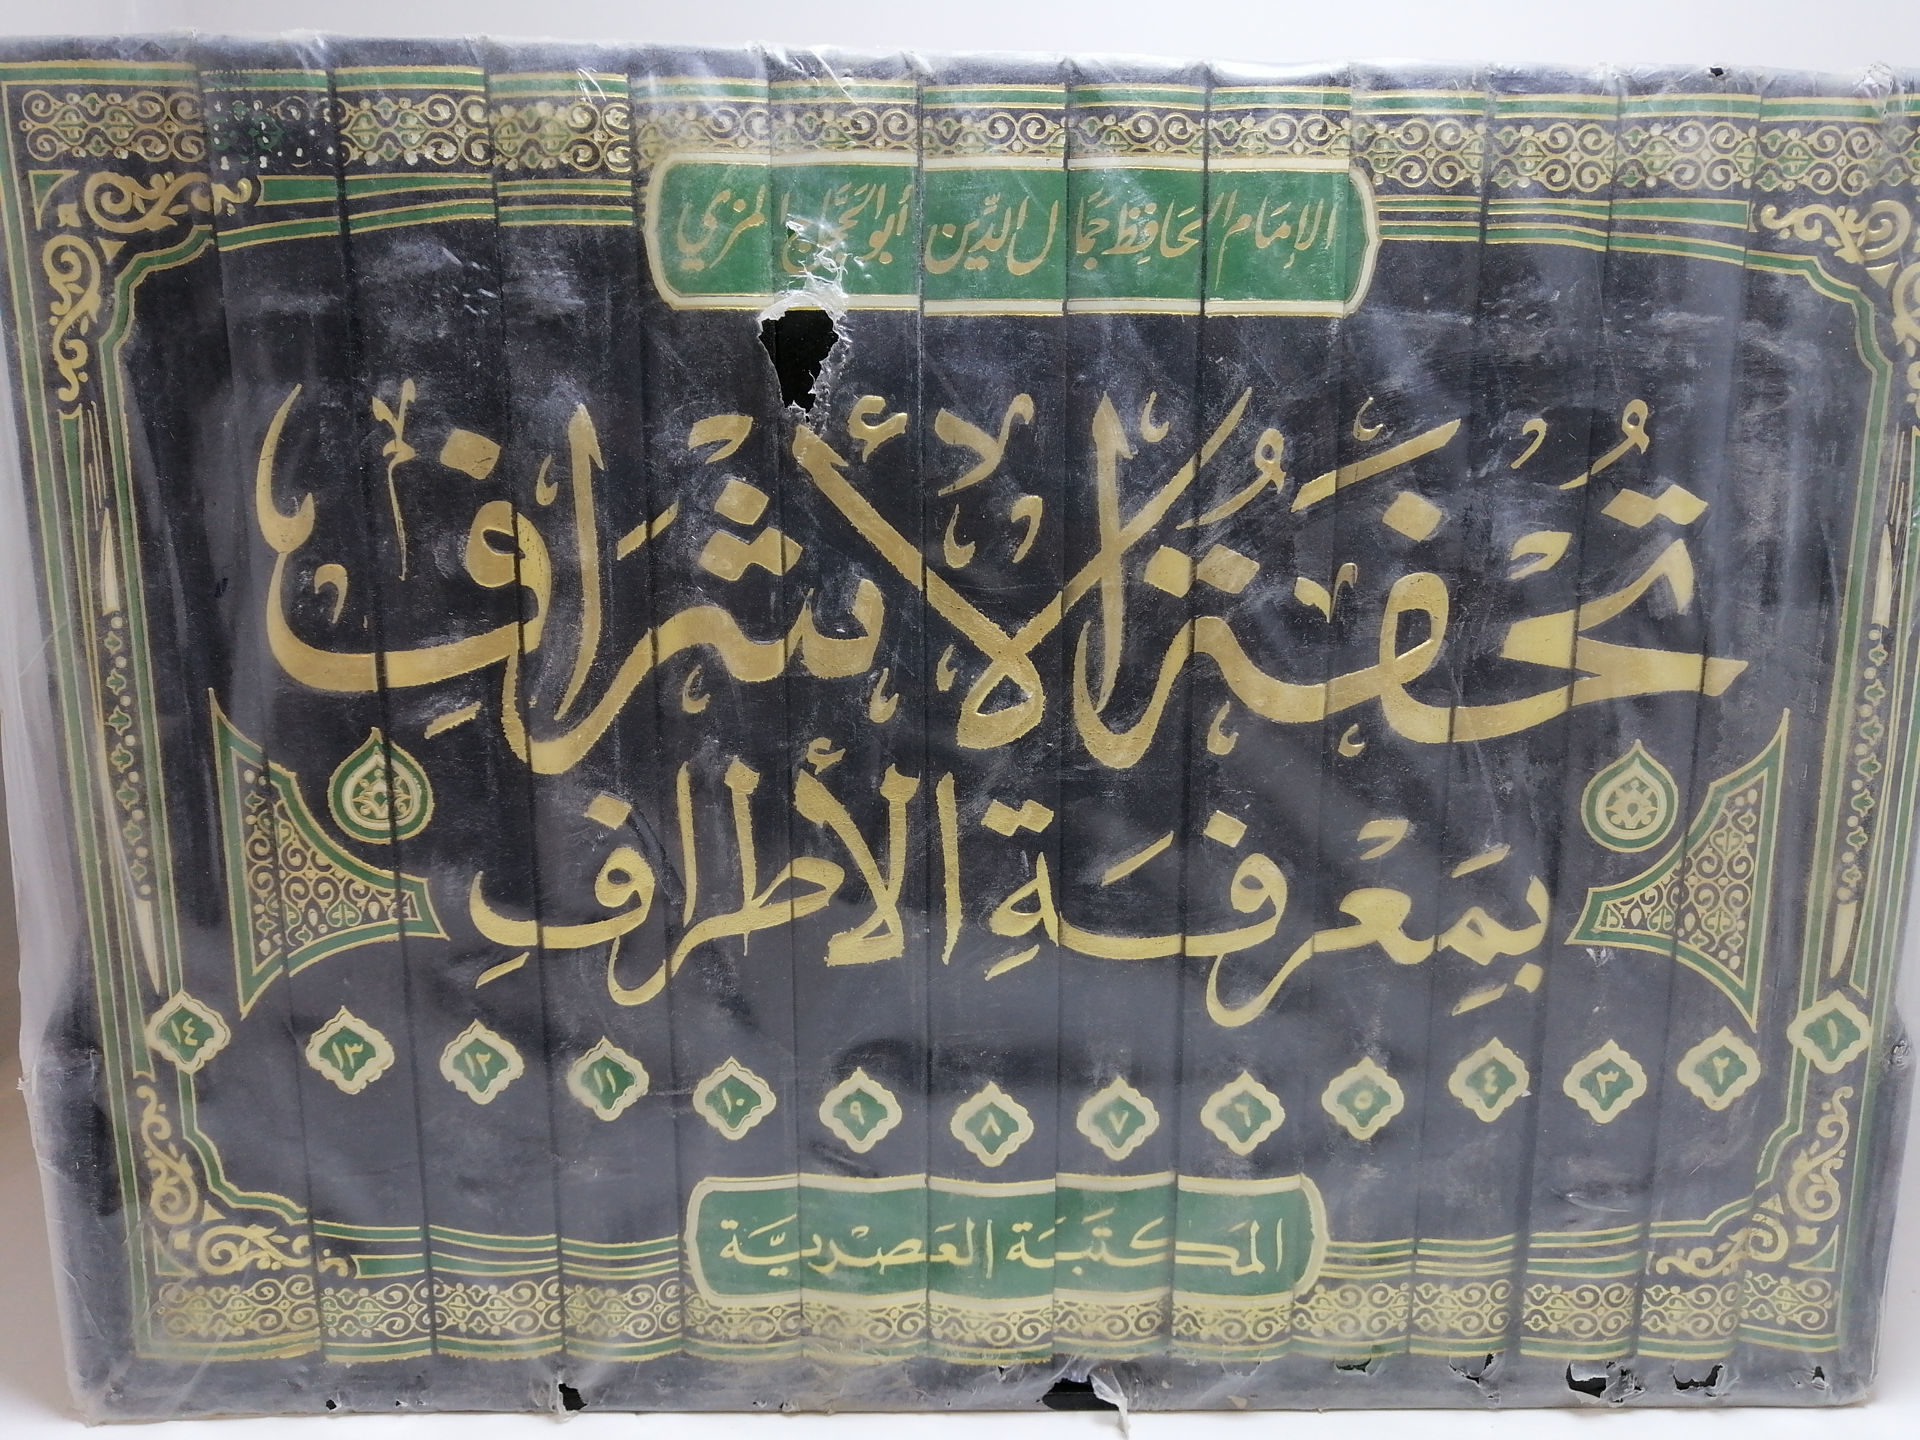 الإِمَام الحَافِظ جَمَال الدِّين أَبو الحَجَّاج المزي
تُحْفَةُ الأَشْرَافِ
بِمَعْرِفَةِ الأَطْرَافِ
١ ٢ ٣ ٤ ٥ ٦ ٧ ٨ ٩ ١٠ ١١ ١٢ ١٣ ١٤
المَكتَبَة العَصْريَّة